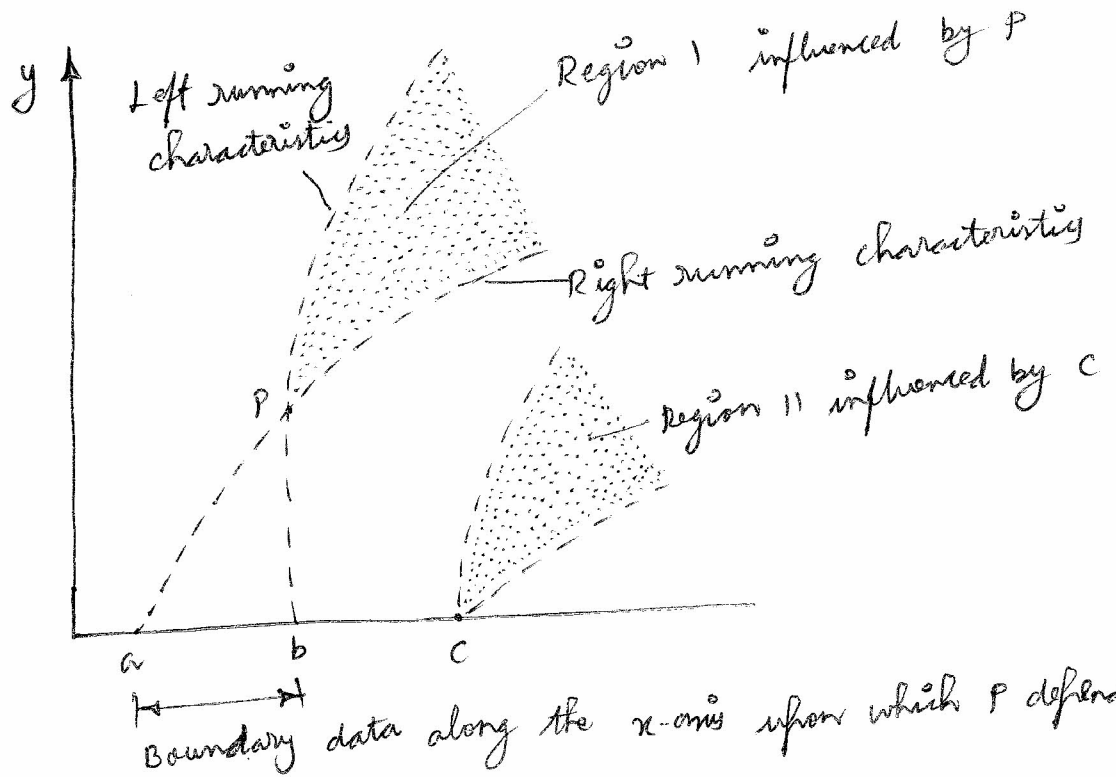 y
Left running
characteristics
Region I influenced by P
Right running characteristics
P
Region II influenced by C
a
b
C
Boundary data along the x-axis upon which P depen